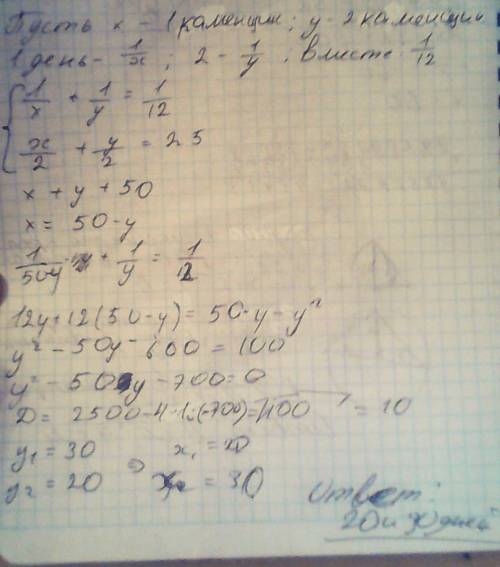 Пусть x - 1 каменщик; y - 2 каменщик
1 день - 1/x ; 2 - 1/y ; вместе: 1/12
1/x + 1/y = 1/12
x/2 + y/2 = 25
x + y + 50
x = 50 - y
1/50y + 1/y = 1/12
12y + 12(50-y) = 50·y - y²
y² - 50y - 600 = 100
y² - 50y - 700 = 0
D = 2500 - 4·1·(-700) = √100 = 10
y₁ = 30 x₁ = 20
y₂ = 20 ⇒ x₂ = 30
Ответ:
20 и 30 дней